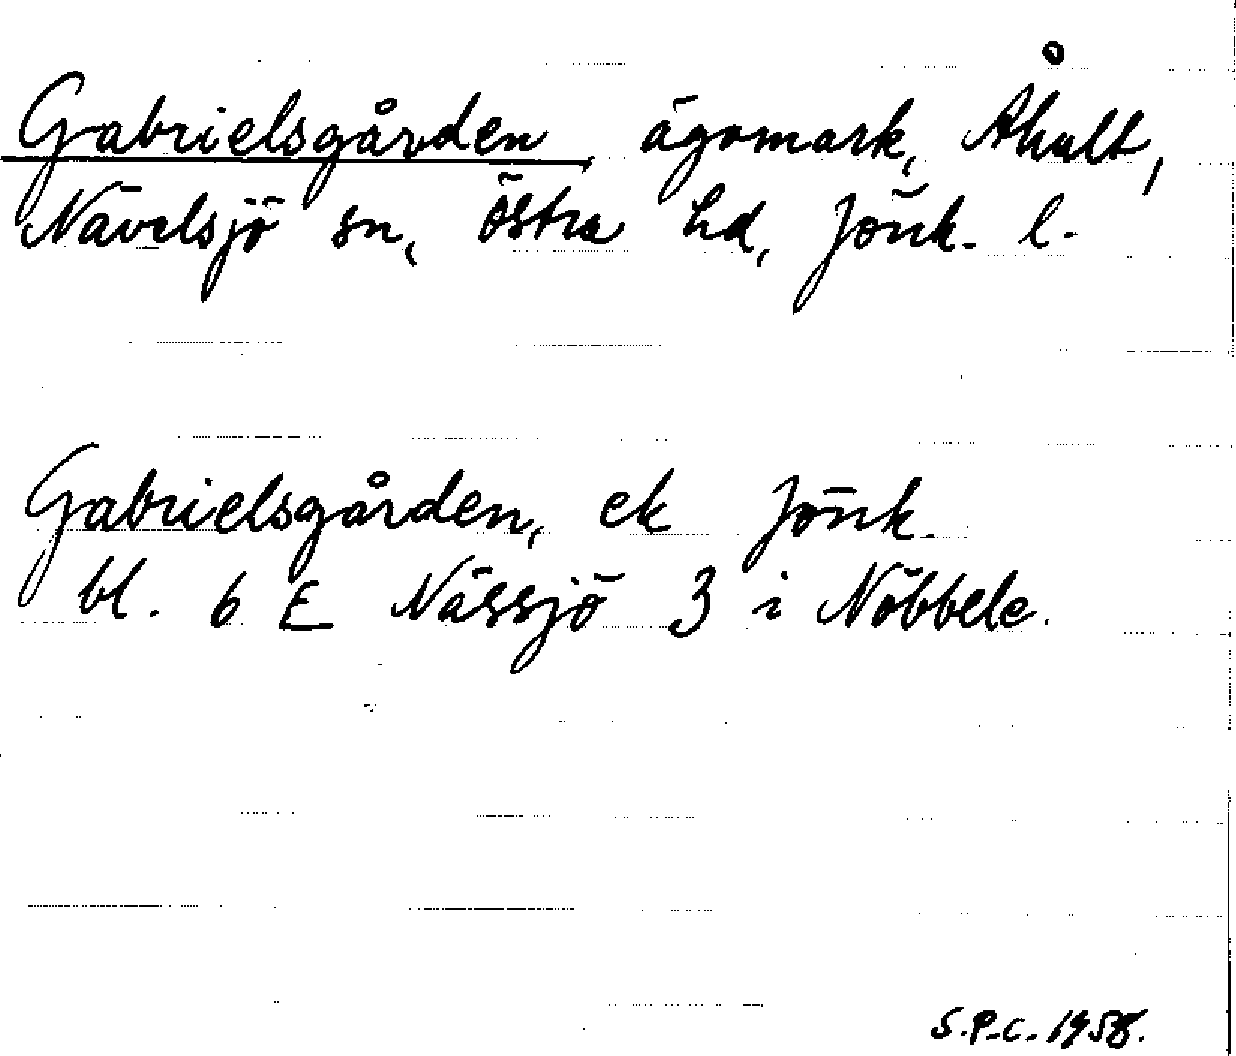 Gabrielsgården, ägomark, Åhult,
Nävelsjö sn, Östra hd, Jönk. l.
Gabrielsgården, ek Jönk.
bl. 6 E Nässjö 3 i Nöbbele.
S.P.C. 1958.